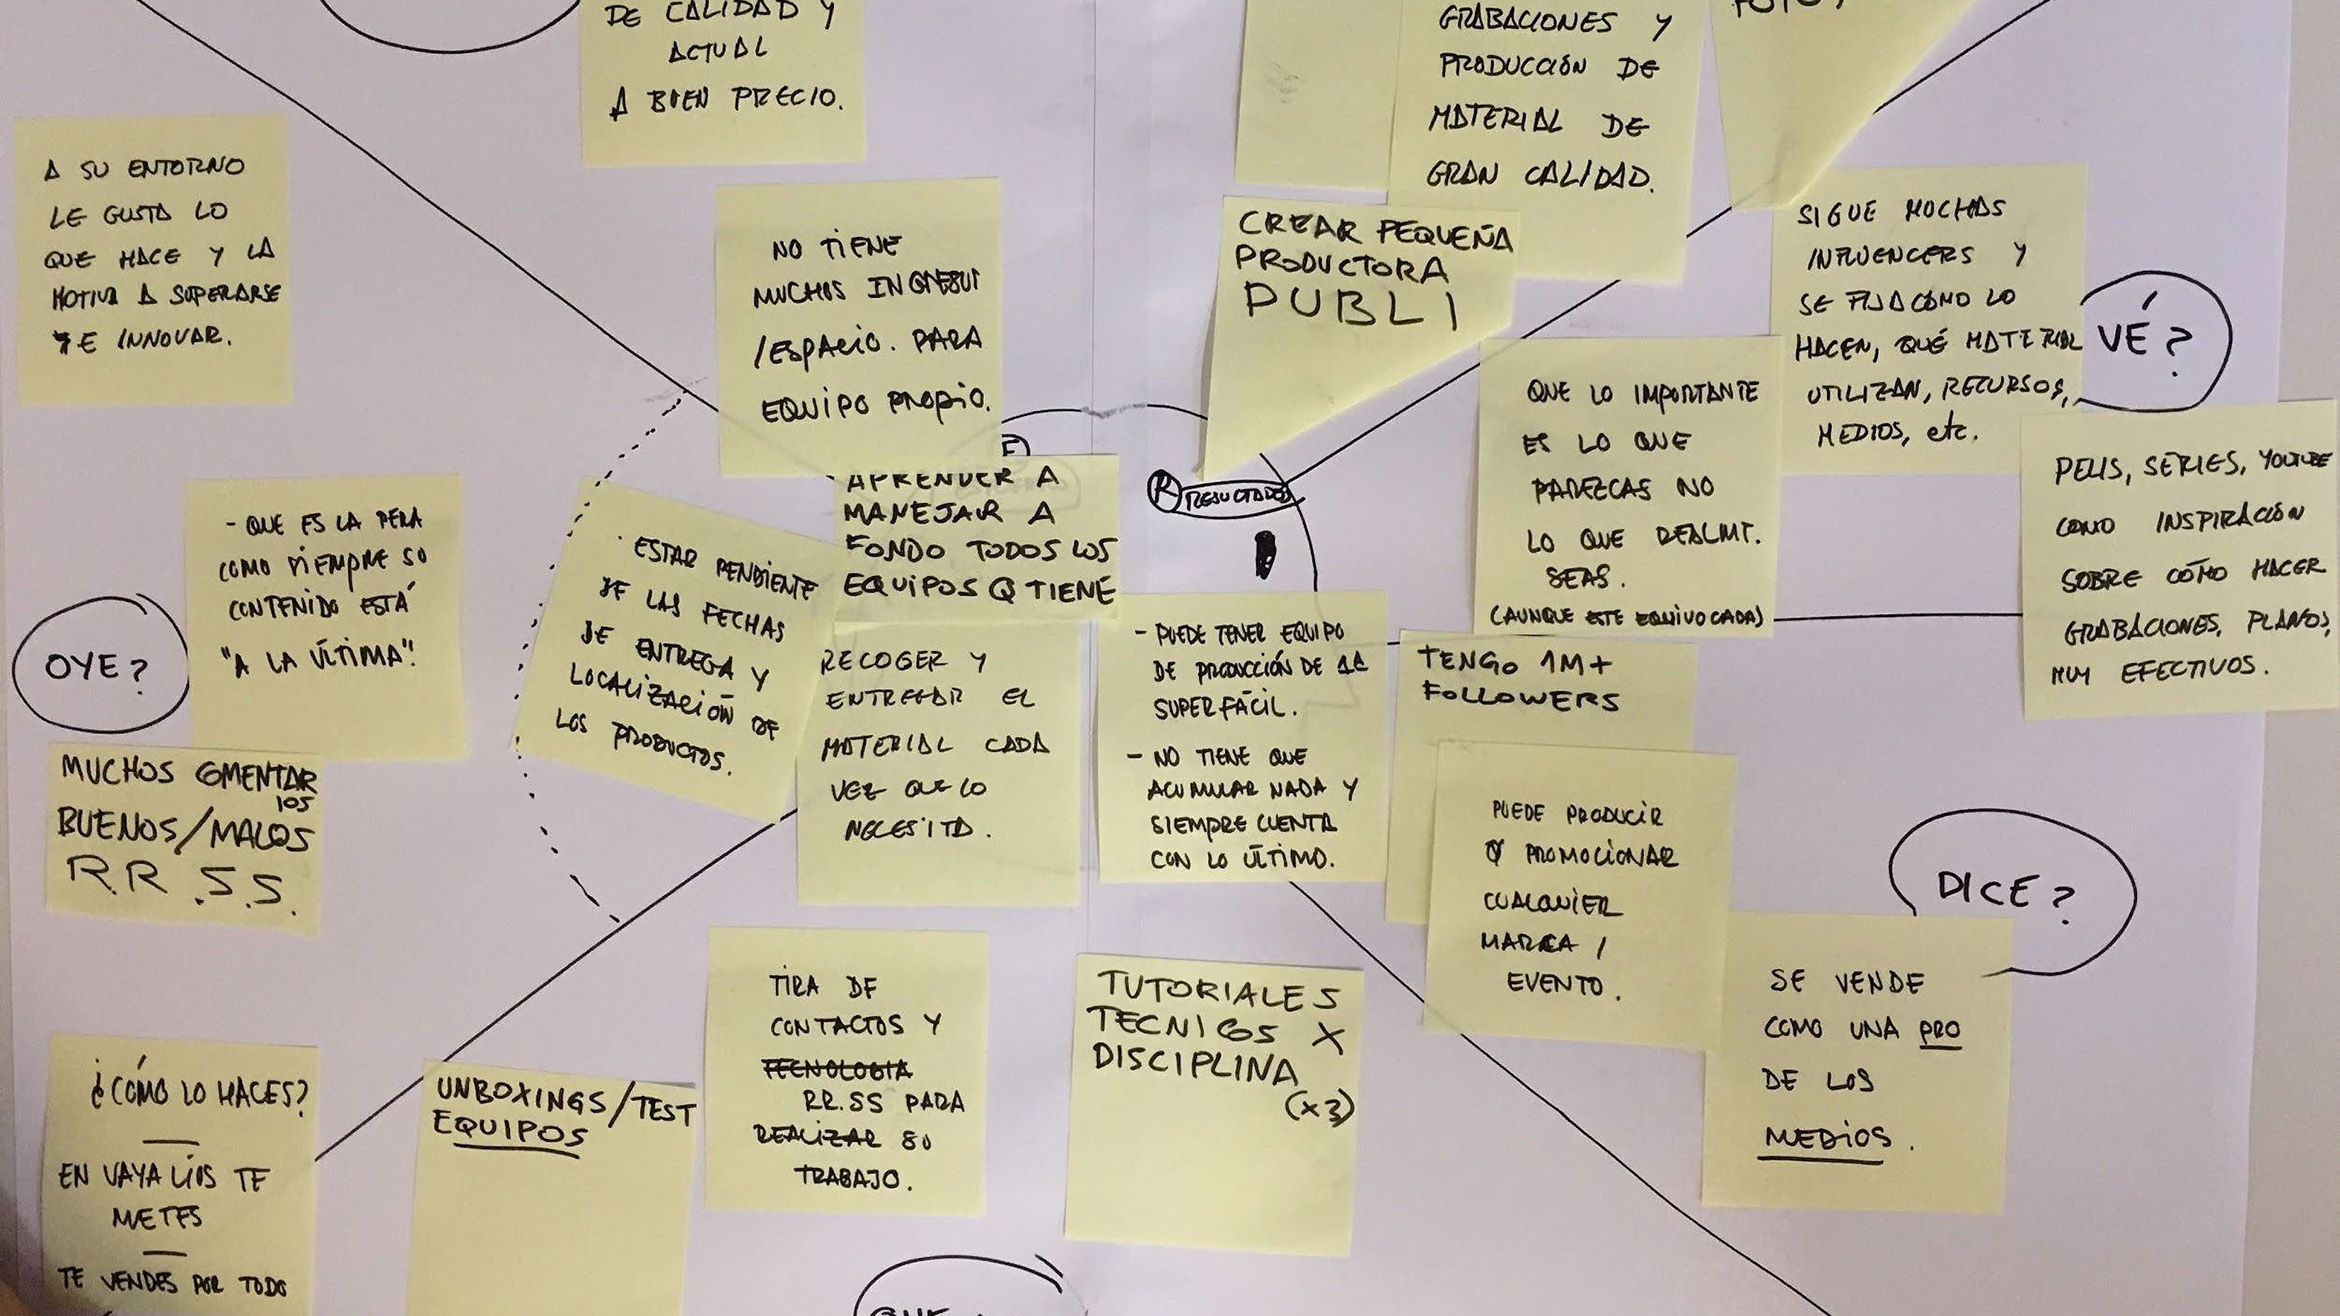 DE CALIDAD Y
ACTUAL
A BIEN PRECIO.
GRABACIONES Y
PRODUCCIÓN DE
MATERIAL DE
GRAN CALIDAD.
A SU ENTORNO
LE GUSTA LO
QUE HACE Y LA
MOTIVA A SUPERARSE
E INNOVAR.
NO TIENE
MUCHOS
/ESPACIO. PARA
EQUIPO PROPIO.
CREAR PEQUEÑA
PRODUCTORA
PUBLI
SIGUE MUCHAS
INFLUENCERS Y
SE FIJA CÓMO LO
HACEN, QUÉ MATERIAL
UTILIZAN, RECURSOS,
MEDIOS, etc.
VÉ?
QUE LO IMPORTANTE
ES LO QUE
PAREZCAS NO
LO QUE REALMT.
SEAS.
(AUNQUE ESTE EQUIVOCADA)
PELIS, SERIES, YOUTUBE
COMO INSPIRACIÓN
SOBRE CÓMO HACER
GRABACIONES, PLANOS,
MUY EFECTIVOS.
R RESULTADOS
APRENDER A
MANEJAR A
FONDO TODOS LOS
EQUIPOS Q TIENE
- QUE ES LA PERA
COMO SIEMPRE SU
CONTENIDO ESTÁ
"A LA ÚLTIMA".
OYE?
· ESTAR PENDIENTE
DE LAS FECHAS
DE ENTREGA Y
LOCALIZACIÓN DE
LOS PRODUCTOS.
RECOGER Y
ENTREGAR EL
MATERIAL CADA
VEZ QUE LO
NECESITA.
- PUEDE TENER EQUIPO
DE PRODUCCIÓN DE 1ª
SUPER FÁCIL.
- NO TIENE QUE
ACUMULAR NADA Y
SIEMPRE CUENTA
CON LO ÚLTIMO.
TENGO 1M+
FOLLOWERS
PUEDE PRODUCIR
O PROMOCIONAR
CUALQUIER
MARCA /
EVENTO.
DICE?
SE VENDE
COMO UNA PRO
DE LOS
MEDIOS.
MUCHOS COMENTAR
IOS
BUENOS/MALOS
R.R.S.S.
¿CÓMO LO HACES?
EN VAYA LÍOS TE
METES
TE VENDES POR TODO
UNBOXINGS/TEST
EQUIPOS
TIRA DE
CONTACTOS Y
TECNOLOGIA
RR.SS PARA
REALIZAR SU
TRABAJO.
TUTORIALES
TECNICOS X
DISCIPLINA
(x3)